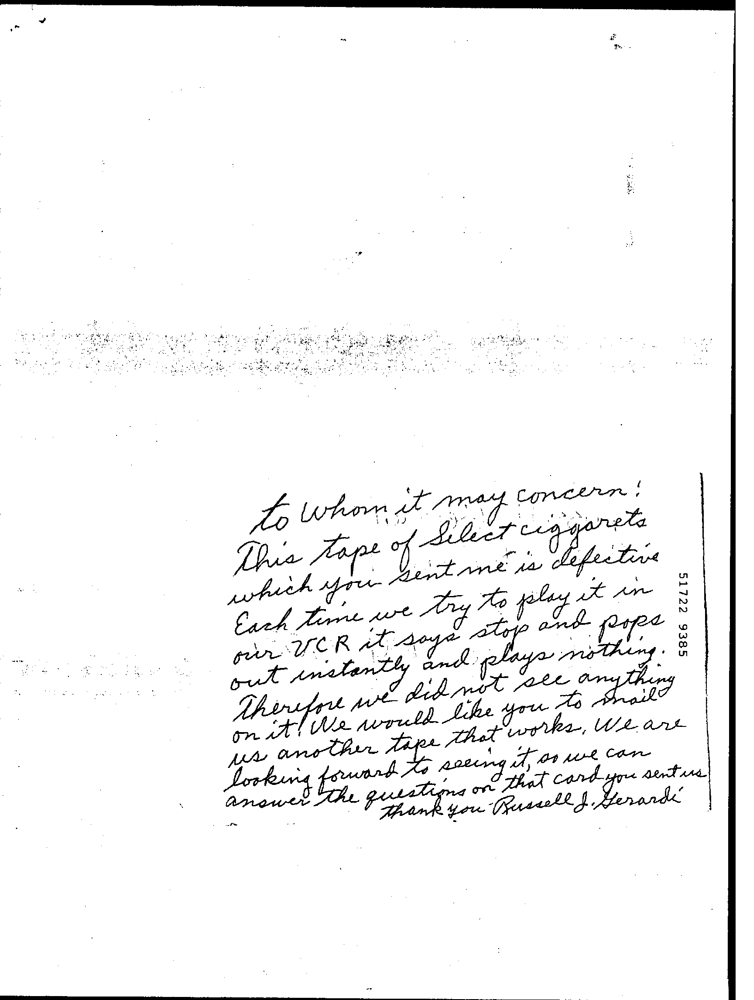 to Whom it may concern!
This tape of Select ciggarets
which you sent me is defective
Each time we try to play it in
our VCR it says stop and pops
out instantly and plays nothing.
Therefore we did not see anything
on it! We would like you to mail
us another tape that works. We are
looking forward to seeing it, so we can
answer the questions on that card you sent us
thank you Russell J. Gerardi
51722 9385